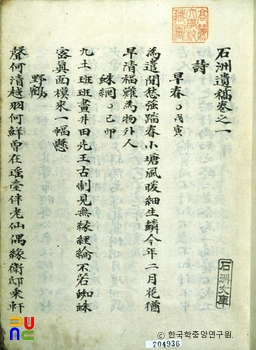 石洲遺稿卷之一
詩
早春○戊寅
為遣閒愁強踏春小塘風暖細生鱗今年二月花猶
早清福難為物外人
蛛網○己卯
九土班班畫井田先王古制見無緣經綸不若蜘蛛
容眞面模來一幅懸
野鶴
聲何清越羽何鮮曾在瑤臺伴老仙偶緣衛邸乘軒
石洲文庫
204936
ⓒ한국학중앙연구원